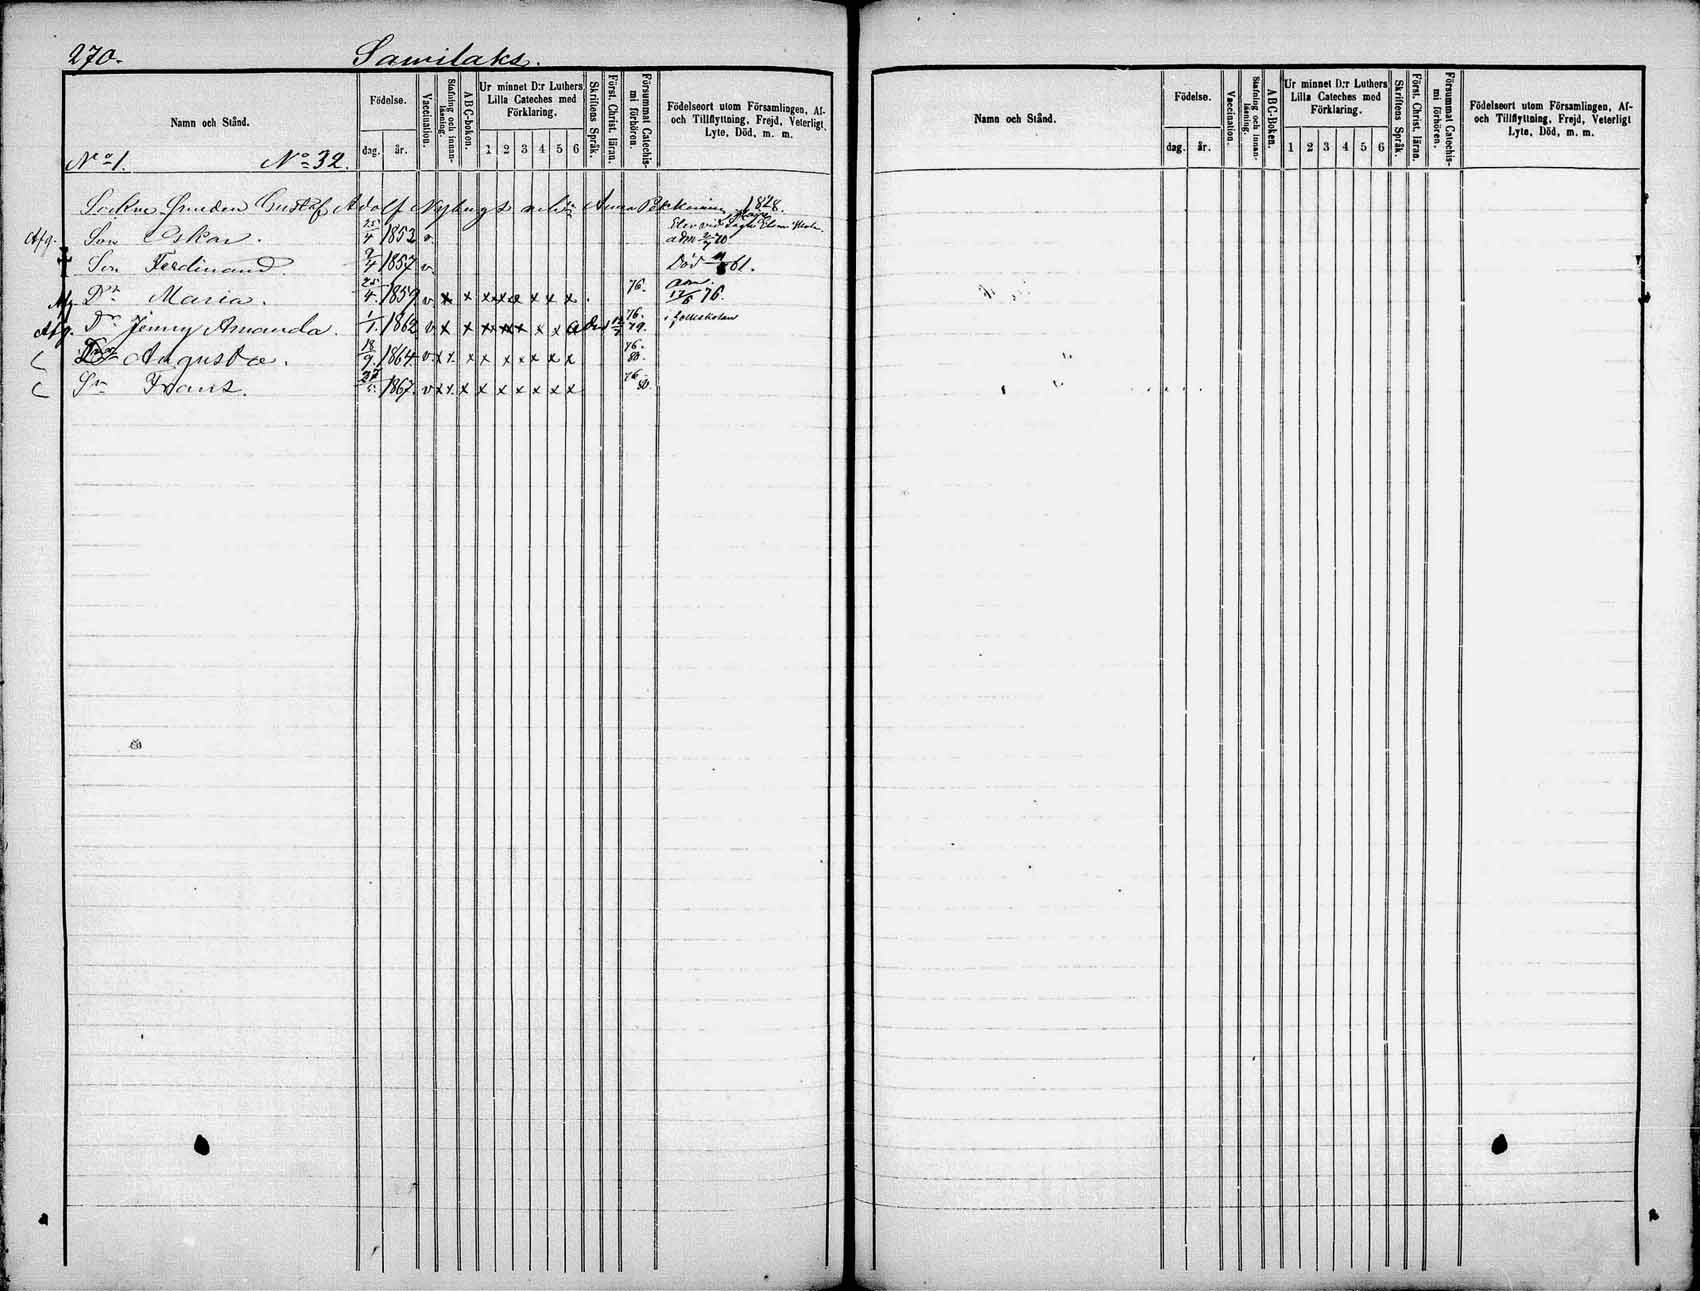 270. Sawilaks.
Namn och Stånd.
Födelse.
dag.
år.
Vaccination.
Stafning och innan-
läsning.
ABC-boken.
Ur minnet D:r Luthers
Lilla Cateches med
Förklaring.
1 2 3 4 5 6
Skriftens Språk.
Först. Christ. läran.
Försummat Catechis-
mi förhören.
Födelseort utom Församlingen, Af-
och Tillflyttning, Frejd, Veterligt
Lyte, Död, m. m.
No 1. No 32.
Gustaf Adolf Nybergs Anna Pekkarinen 1828.
Afg. Son Oskar. 25/4 1852 v. Elev vid
adm
Son Ferdinand. 2/4 1857 v. Död 61.
Afg. Dr Maria. 25/4 1859 v x x x x x x x x 76. adm. 12/6 76.
Afg. Dr Jenny Amanda. 1/1 1862 v x x x x x x x 76. 79. i folkskolan
Augusta. 18/9 1864. v. x x x x x x x x x 76. 80.
Sn Frans. 1867. v x x x x x x x x x 76 80.
Namn och Stånd.
Födelse.
dag.
år.
Vaccination.
Stafning och innan-
läsning.
ABC-Boken.
Ur minnet D:r Luthers
Lilla Cateches med
Förklaring.
1 2 3 4 5 6
Skriftens Språk.
Först. Christ. läran.
Försummat Catechis-
mi förhören.
Födelseort utom Församlingen, Af-
och Tillflyttning, Frejd, Veterligt
Lyte, Död, m. m.